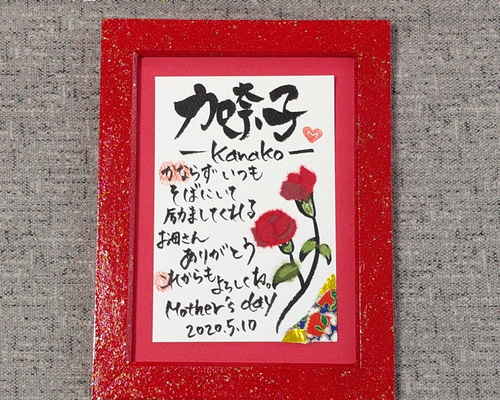 加奈子
－Kanako－
かならずいつも
そばにいて
励ましてくれる
お母さん
ありがとう
これからもよろしくね。
Mother's day
2020.5.10